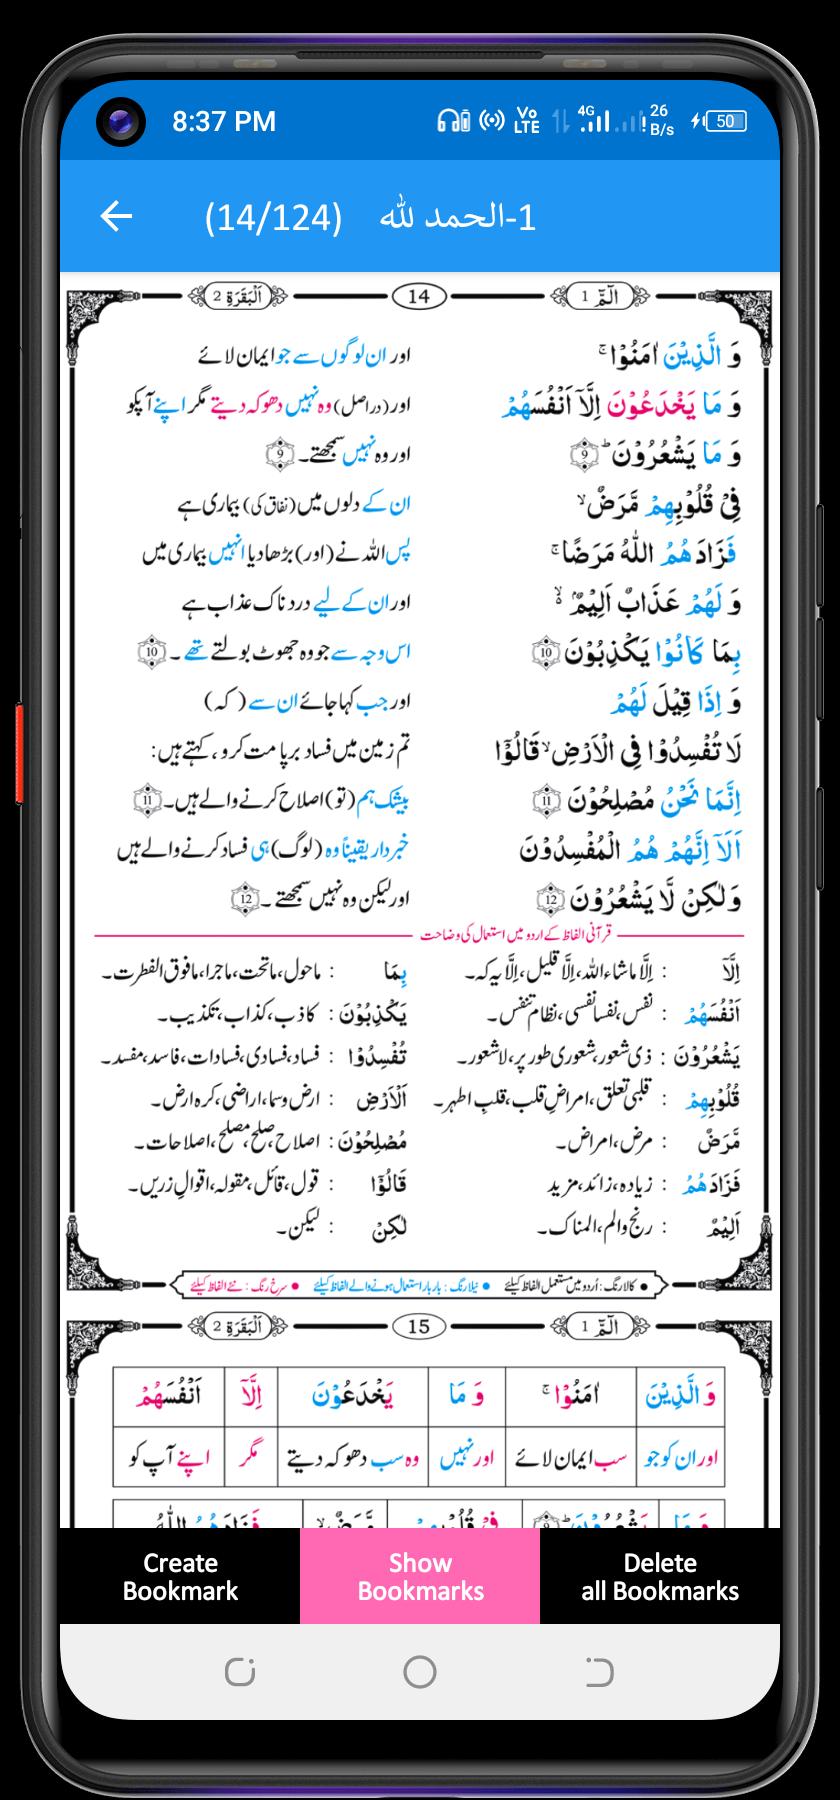 8:37 PM VoLTE 4G 26 B/s 50
(14/124) 1-الحمد لله
الٓمّٓ 1 14 اَلْبَقَرَة 2
وَ الَّذِيْنَ اٰمَنُوْا ۚ اور ان لوگوں سے جو ایمان لائے
وَ مَا يَخْدَعُوْنَ اِلَّاۤ اَنْفُسَهُمْ اور (دراصل) وہ نہیں دھوکہ دیتے مگر اپنے آپکو
وَ مَا يَشْعُرُوْنَ ؕ 9 اور وہ نہیں سمجھتے۔ 9
فِيْ قُلُوْبِهِمْ مَّرَضٌ ۙ ان کے دلوں میں (نفاق کی) بیماری ہے
فَزَادَهُمُ اللّٰهُ مَرَضًا ۚ پس اللہ نے (اور) بڑھا دیا انہیں بیماری میں
وَ لَهُمْ عَذَابٌ اَلِيْمٌۢ ۙ۬ اور ان کے لیے دردناک عذاب ہے
بِمَا كَانُوْا يَكْذِبُوْنَ 10 اس وجہ سے جو وہ جھوٹ بولتے تھے ۔ 10
وَ اِذَا قِيْلَ لَهُمْ اور جب کہا جائے ان سے ( کہ)
لَا تُفْسِدُوْا فِى الْاَرْضِ ۙ قَالُوْۤا تم زمین میں فساد برپا مت کرو ، کہتے ہیں:
اِنَّمَا نَحْنُ مُصْلِحُوْنَ 11 بیشک ہم (تو) اصلاح کرنے والے ہیں۔ 11
اَلَاۤ اِنَّهُمْ هُمُ الْمُفْسِدُوْنَ خبردار یقیناً وہ (لوگ) ہی فساد کرنے والے ہیں
وَلٰكِنْ لَّا يَشْعُرُوْنَ 12 اور لیکن وہ نہیں سمجھتے ۔ 12
قرآنی الفاظ کے اردو میں استعمال کی وضاحت
اِلَّاۤ : اِلَّا ماشاءاللہ، اِلَّا قلیل، اِلَّا یہ کہ۔ بِمَا : ماحول، ماتحت، ماجرا، مافوق الفطرت۔
اَنْفُسَهُمْ : نفس، نفسا نفسی، نظام تنفس۔ يَكْذِبُوْنَ : کاذب، کذاب، تکذیب۔
يَشْعُرُوْنَ : ذی شعور، شعوری طور پر، لاشعور۔ تُفْسِدُوْا : فساد، فسادی، فسادات، فاسد، مفسد۔
قُلُوْبِهِمْ : قلبی تعلق، امراضِ قلب، قلبِ اطہر۔ اَلْاَرْضِ : ارض و سما، اراضی، کرہ ارض۔
مَّرَضٌ : مرض، امراض۔ مُصْلِحُوْنَ : اصلاح، صلح، مصلح، اصلاحات۔
فَزَادَهُمُ : زیادہ، زائد، مزید قَالُوْۤا : قول، قائل، مقولہ، اقوالِ زریں۔
اَلِيْمٌ : رنج و الم، المناک۔ لٰكِنْ : لیکن۔
● کالا رنگ : اُردو میں مستعمل الفاظ کیلئے ● نیلا رنگ : بار بار استعمال ہونے والے الفاظ کیلئے ● سرخ رنگ : نئے الفاظ کیلئے
الٓمّٓ 1 15 اَلْبَقَرَة 2
وَ الَّذِيْنَ اٰمَنُوْا ۚ وَ مَا يَخْدَعُوْنَ اِلَّاۤ اَنْفُسَهُمْ
اور ان کو جو سب ایمان لائے اور نہیں وہ سب دھوکہ دیتے مگر اپنے آپ کو
وَ مَا يَشْعُرُوْنَ ؕ 9 فِيْ قُلُوْبِهِمْ مَّرَضٌ ۙ فَزَادَهُمُ اللّٰهُ
Create Bookmark
Show Bookmarks
Delete all Bookmarks